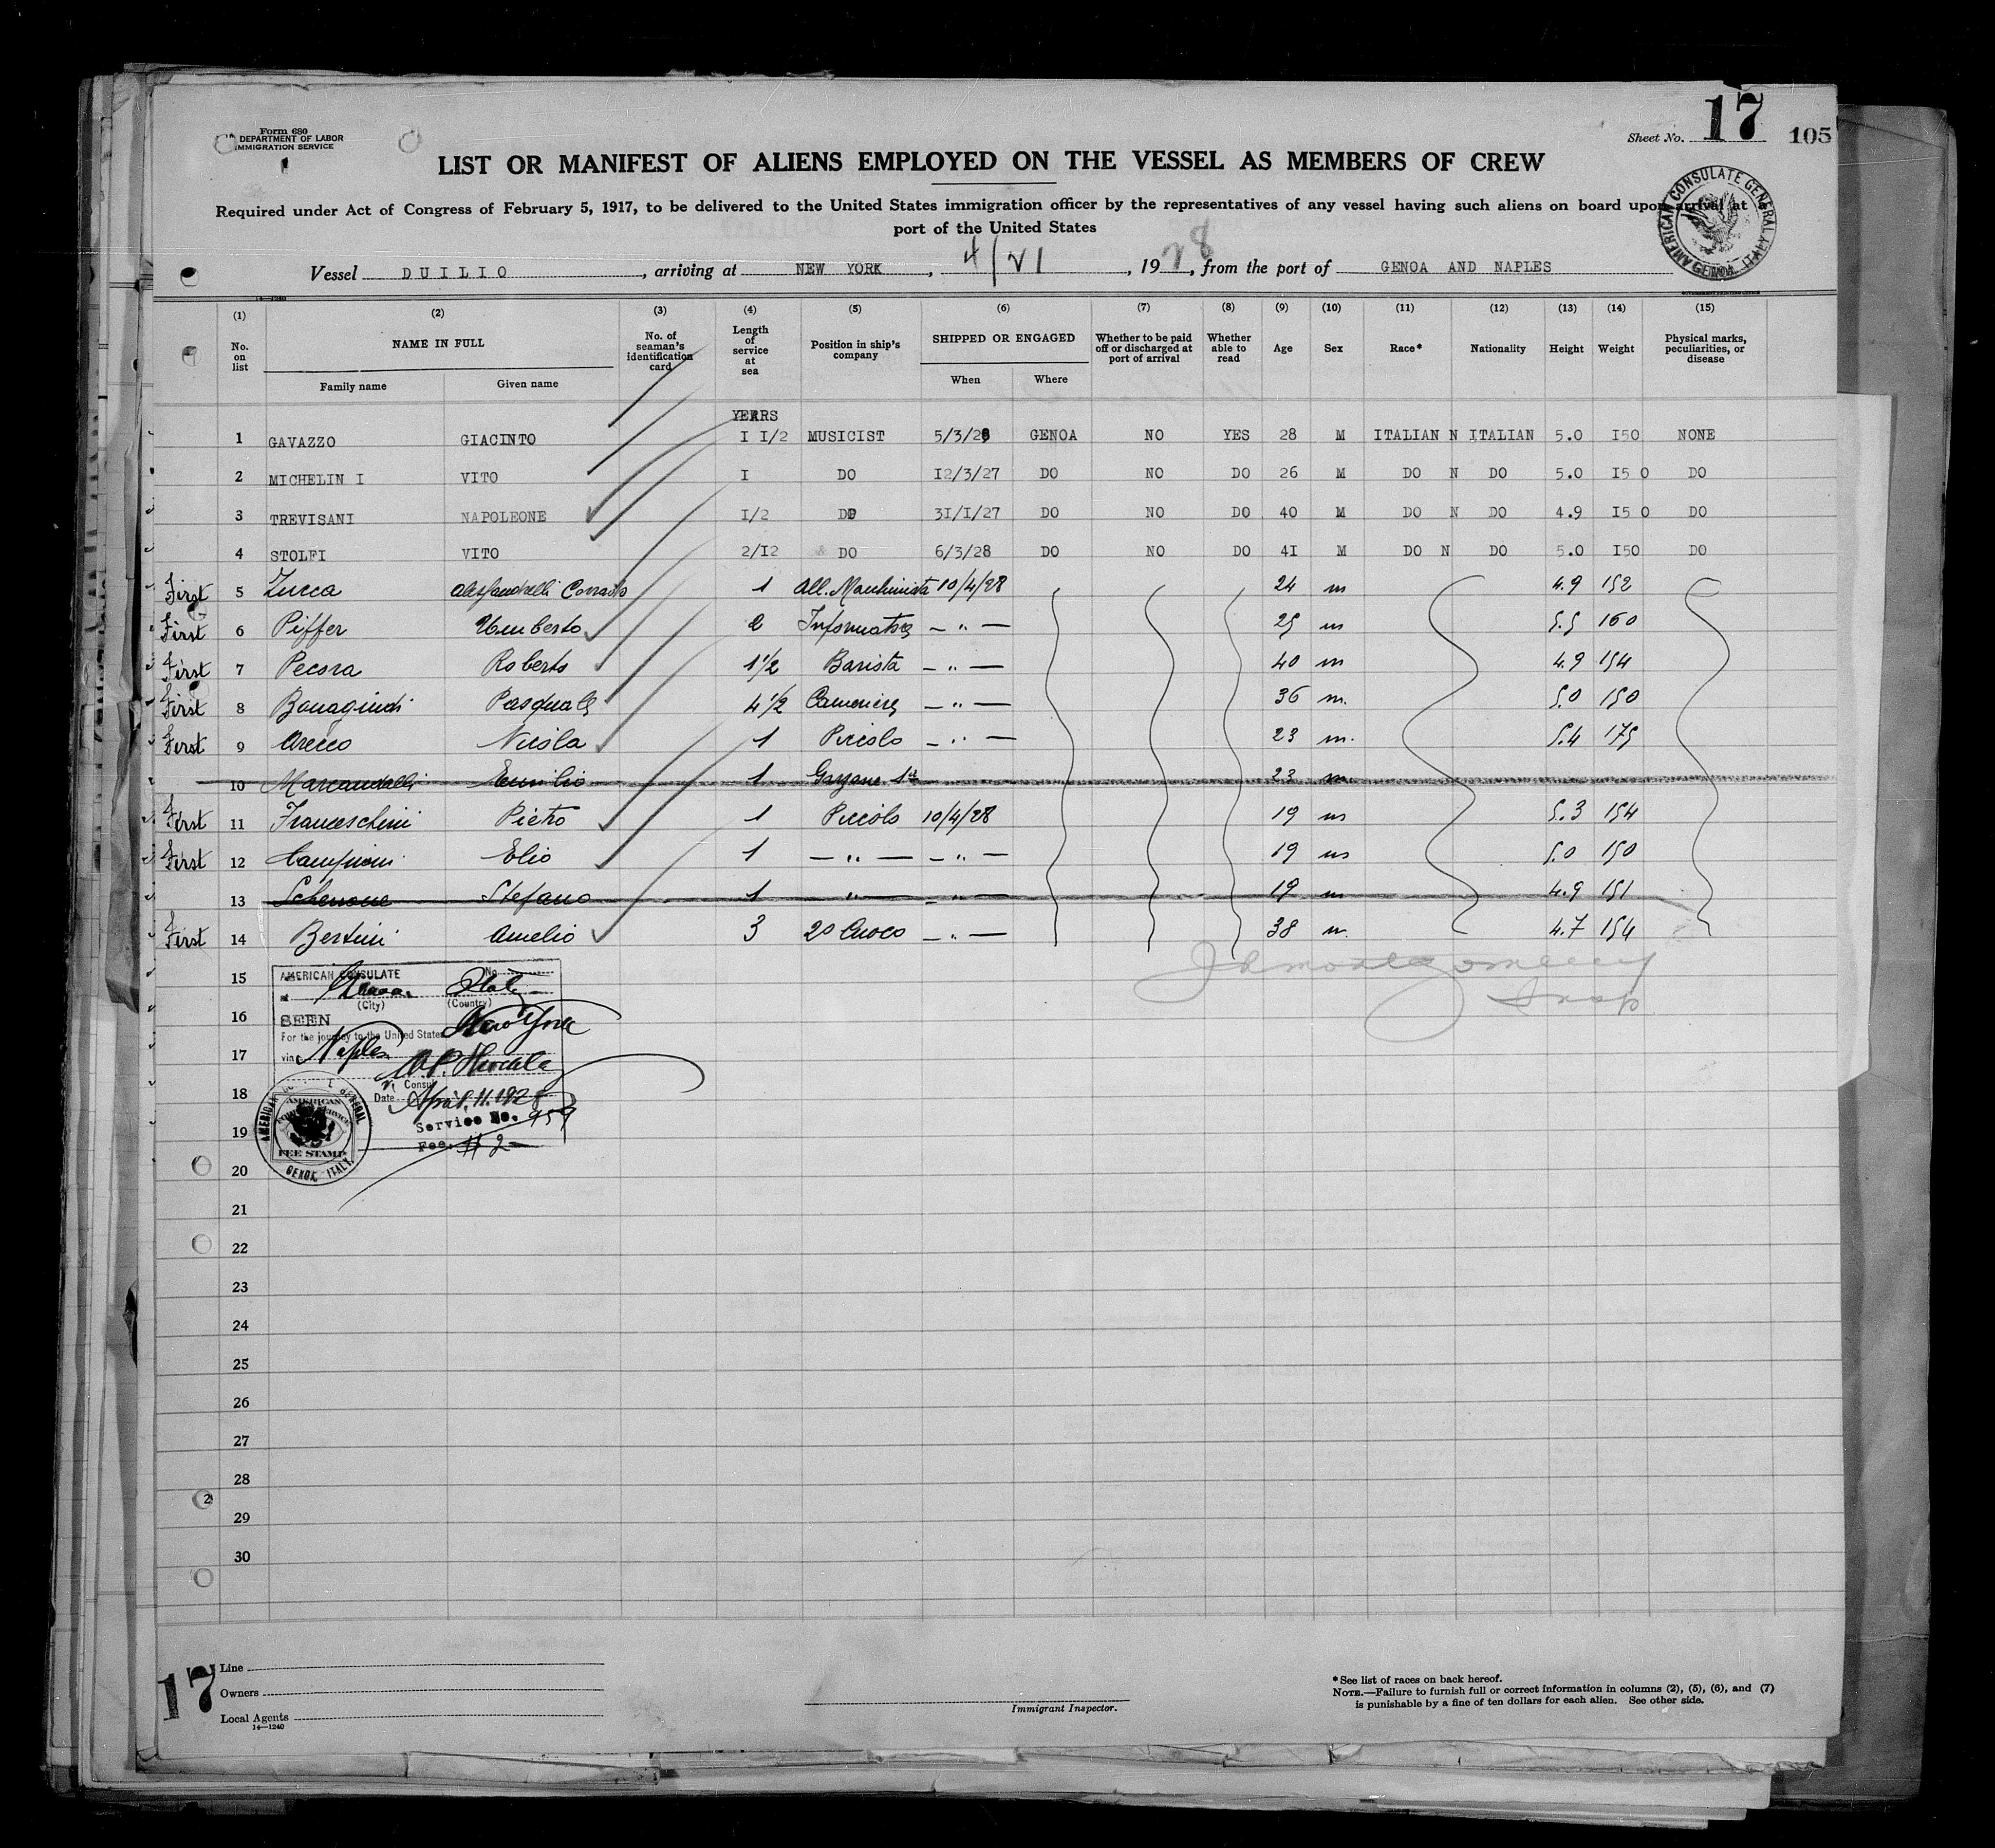 Form 680
DEPARTMENT OF LABOR
IMMIGRATION SERVICE
Sheet No. 17 105
LIST OR MANIFEST OF ALIENS EMPLOYED ON THE VESSEL AS MEMBERS OF CREW
Required under Act of Congress of February 5, 1917, to be delivered to the United States immigration officer by the representatives of any vessel having such aliens on board upon arrival at a
port of the United States
AMERICAN CONSULATE GENERAL GENOA, ITALY
Vessel DUILIO, arriving at NEW YORK, 4/21, 1928, from the port of GENOA AND NAPLES
14—1240
(1) (2) (3) (4) (5) (6) (7) (8) (9) (10) (11) (12) (13) (14) (15)
No. on list NAME IN FULL Family name Given name No. of seaman's identification card Length of service at sea Position in ship's company SHIPPED OR ENGAGED When Where Whether to be paid off or discharged at port of arrival Whether able to read Age Sex Race* Nationality Height Weight Physical marks, peculiarities, or disease
YEARS
1 GAVAZZO GIACINTO I I/2 MUSICIST 5/3/28 GENOA NO YES 28 M ITALIAN N ITALIAN 5.0 I50 NONE
2 MICHELIN I VITO I DO I2/3/27 DO NO DO 26 M DO N DO 5.0 I5 0 DO
3 TREVISANI NAPOLEONE I/2 DO 3I/I/27 DO NO DO 40 M DO N DO 4.9 I5 0 DO
4 STOLFI VITO 2/I2 DO 6/3/28 DO NO DO 4I M DO N DO 5.0 I50 DO
First 5 Zucca Corrado 1 All. Macchinista 10/4/28 24 m 4.9 152
First 6 Piffer Umberto 2 Informatore — " — 25 m 5.5 160
First 7 Pecora Roberto 1 1/2 Barista — " — 40 m 4.9 154
First 8 Pasquale 4 1/2 Cameriere — " — 36 m. 5.0 150
First 9 Arecco Nicola 1 Piccolo — " — 23 m. 5.4 175
10 Emilio 1 Garzone 23 m
First 11 Franceschini Pietro 1 Piccolo 10/4/28 19 m 5.3 154
First 12 Campioni Elio 1 — " — — " — 19 m 5.0 150
13 Schenone Stefano 1 " — — " — 19 m 4.9 151
First 14 Bertini Amelio 3 2o Cuoco — " — 38 m. 4.7 154
J H Montgomery
Insp
15
AMERICAN CONSULATE No.
at Genoa Italy
(City) (Country)
16
SEEN
For the journey to the United States New York
17
via Naples
Consul
18
Date April 11. 1928
Service No. 959
19
Fee: # 2 —
AMERICAN FOREIGN SERVICE FEE STAMP
AMERICAN CONSULATE GENERAL GENOA, ITALY
20
21
22
23
24
25
26
27
28
29
30
2
17
Line
Owners
Local Agents
14—1240
Immigrant Inspector.
*See list of races on back hereof.
NOTE.—Failure to furnish full or correct information in columns (2), (5), (6), and (7)
is punishable by a fine of ten dollars for each alien. See other side.